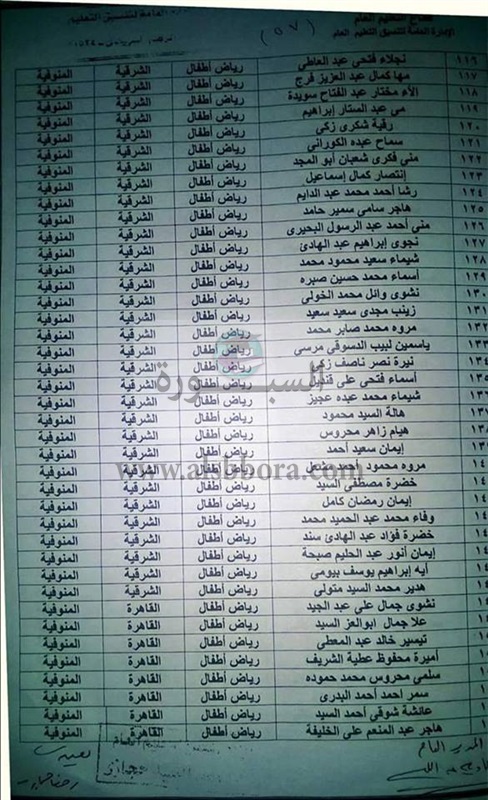 قطاع التعليم العام
الإدارة العامة لتنسيق التعليم العام
(٥٧)
١١٦ نجلاء فتحى عبد العاطى رياض أطفال الشرقية المنوفية
١١٧ مها كمال عبد العزيز فرج رياض أطفال الشرقية المنوفية
١١٨ الأء مختار عبد الفتاح سويدة رياض أطفال الشرقية المنوفية
١١٩ مى عبد الستار إبراهيم رياض أطفال الشرقية المنوفية
١٢٠ رقية شكرى زكى رياض أطفال الشرقية المنوفية
١٢١ سماح عبده الكورانى رياض أطفال الشرقية المنوفية
١٢٢ منى فكرى شعبان أبو المجد رياض أطفال الشرقية المنوفية
١٢٣ إنتصار كمال إسماعيل رياض أطفال الشرقية المنوفية
١٢٤ رشا أحمد محمد عبد الدايم رياض أطفال الشرقية المنوفية
١٢٥ هاجر سامى سمير حامد رياض أطفال الشرقية المنوفية
١٢٦ منى أحمد عبد الرسول البحيرى رياض أطفال الشرقية المنوفية
١٢٧ نجوى إبراهيم عبد الهادئ رياض أطفال الشرقية المنوفية
١٢٨ شيماء سعيد محمود محمد رياض أطفال الشرقية المنوفية
١٢٩ أسماء محمد حسين صبره رياض أطفال الشرقية المنوفية
١٣٠ نشوى وائل محمد الخولى رياض أطفال الشرقية المنوفية
١٣١ زينب مجدى سعيد سعيد رياض أطفال الشرقية المنوفية
١٣٢ مروه محمد صابر محمد رياض أطفال الشرقية المنوفية
١٣٣ ياسمين لبيب الدسوقى مرسى رياض أطفال الشرقية المنوفية
١٣٤ نيرة نصر ناصف زكى رياض أطفال الشرقية المنوفية
١٣٥ أسماء فتحى على قنديل رياض أطفال الشرقية المنوفية
١٣٦ شيماء محمد عبده عجيز رياض أطفال الشرقية المنوفية
هالة السيد محمود رياض أطفال الشرقية المنوفية
هيام زاهر محروس رياض أطفال الشرقية المنوفية
إيمان سعيد أحمد رياض أطفال الشرقية المنوفية
مروه محمود أحمد رياض أطفال الشرقية المنوفية
خضرة مصطفى السيد رياض أطفال الشرقية المنوفية
إيمان رمضان كامل رياض أطفال الشرقية المنوفية
وفاء محمد عبد الحميد محمد رياض أطفال الشرقية المنوفية
خضرة فؤاد عبد الهادئ سند رياض أطفال الشرقية المنوفية
إيمان أنور عبد الحليم صبحة رياض أطفال الشرقية المنوفية
أيه إبراهيم يوسف بيومى رياض أطفال الشرقية المنوفية
هدير محمد السيد متولى رياض أطفال الشرقية المنوفية
نشوى جمال على عبد الجيد رياض أطفال القاهرة المنوفية
علا جمال ابوالعز السيد رياض أطفال القاهرة المنوفية
تيسير خالد عبد المعطى رياض أطفال القاهرة المنوفية
أميرة محفوظ عطية الشريف رياض أطفال القاهرة المنوفية
سلمى محروس محمد حموده رياض أطفال القاهرة المنوفية
سمر أحمد أحمد البدرى رياض أطفال القاهرة المنوفية
عائشة شوقى أحمد السيد رياض أطفال القاهرة المنوفية
هاجر عبد المنعم على الخليفة رياض أطفال القاهرة المنوفية
السبورة
المدير العام